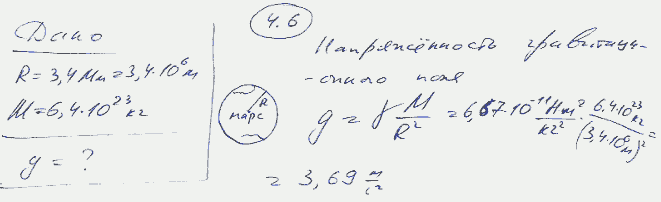 Дано
R = 3,4 Мм = 3,4·10⁶ м
M = 6,4·10²³ кг
g = ?
4.6
Напряжённость гравитаци-
-онного поля
R
марс
g = γ M/R² = 6,67·10⁻¹¹ Нм²/кг² · 6,4·10²³ кг/(3,4·10⁶ м)² =
= 3,69 м/с²